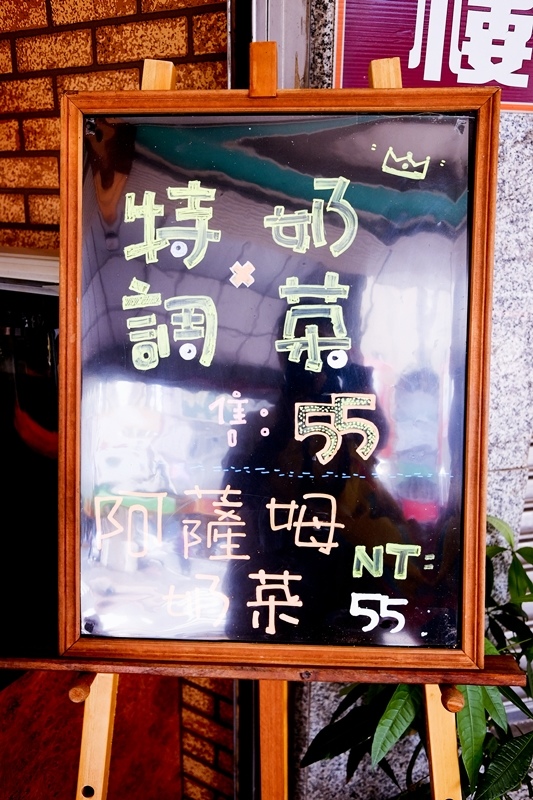 樓
特調
×
奶茶
售:55
阿薩姆
奶茶
NT:
55